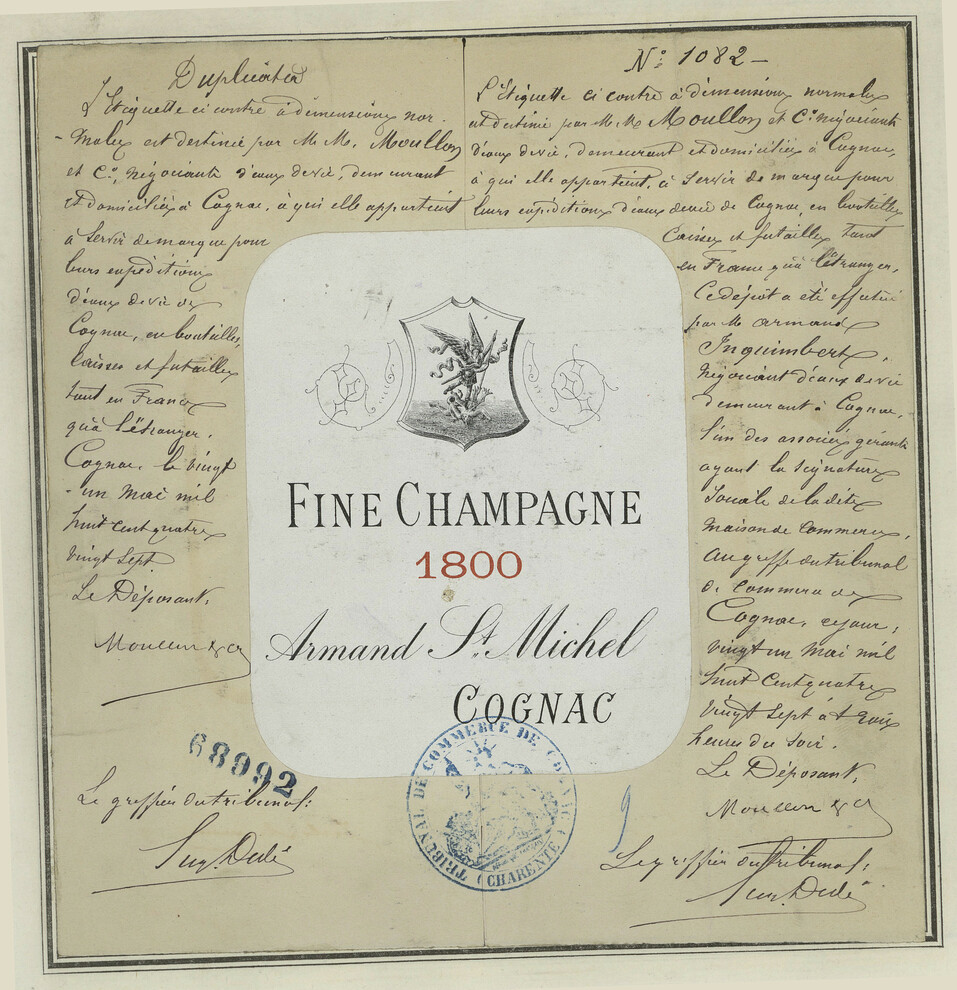 Duplicata
L'Etiquette ci contre à dimensions nor-
-males est destinée par M.M. Moullon
et Cie, négociants d'eaux de vie, demeurant
et domiciliés à Cognac, à qui elle appartient
à servir de marque pour
leurs expéditions
d'eaux de vie de
Cognac, en bouteilles,
caisses et futailles
tant en France
qu'à l'étranger.
Cognac, le vingt
-un Mai mil
huit cent quatre
vingt sept.
Le Déposant,
Moullon & Cie
68992
Le greffier du tribunal:
N° 1082 -
L'Etiquette ci contre à dimensions normales
est destinée par M.M. Moullon et Cie négociants
d'eaux de vie, demeurant et domiciliés à Cognac,
à qui elle appartient, à servir de marque pour
leurs expéditions d'eaux de vie de Cognac, en bouteilles
Caisses et futailles tant
en France qu'à l'étranger.
Ce dépôt a été effectué
par M. Armand
Inquimbert,
négociant d'eaux de vie
demeurant à Cognac,
l'un des associés gérants
ayant la signature
sociale de la dite
maison de Commerce,
au greffe du tribunal
de commerce de
Cognac, ce jour,
vingt un Mai mil
huit cent quatre
vingt sept à trois
heures du soir.
Le Déposant,
Moullon & Cie
Le greffier du tribunal:
FINE CHAMPAGNE
1800
Armand St. Michel
COGNAC
TRIBUNAL DE COMMERCE DE COGNAC (CHARENTE)